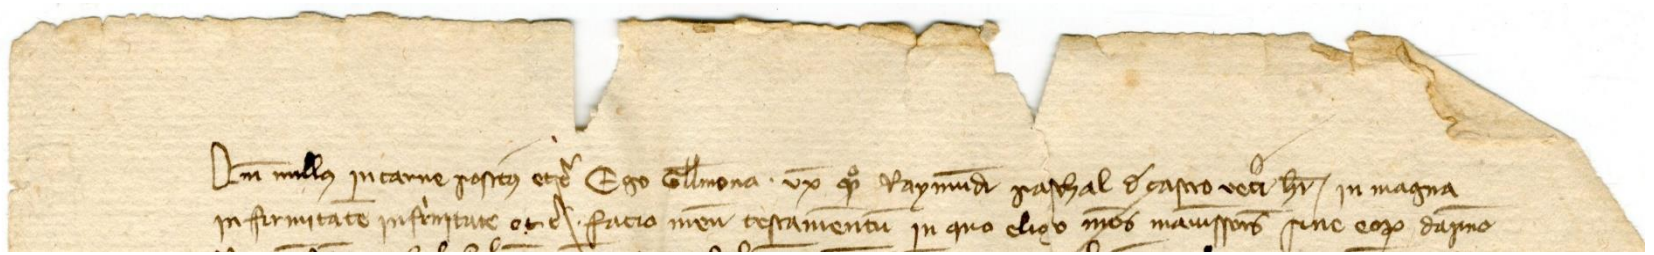 Qm nullus in carne positus etc Ego Gullmona ux qo Raymundi paschal de castro veti hr in magna
infirmitate infirmitate etc facio meu testamentu in quo eligo meos manissores sine eor dapno